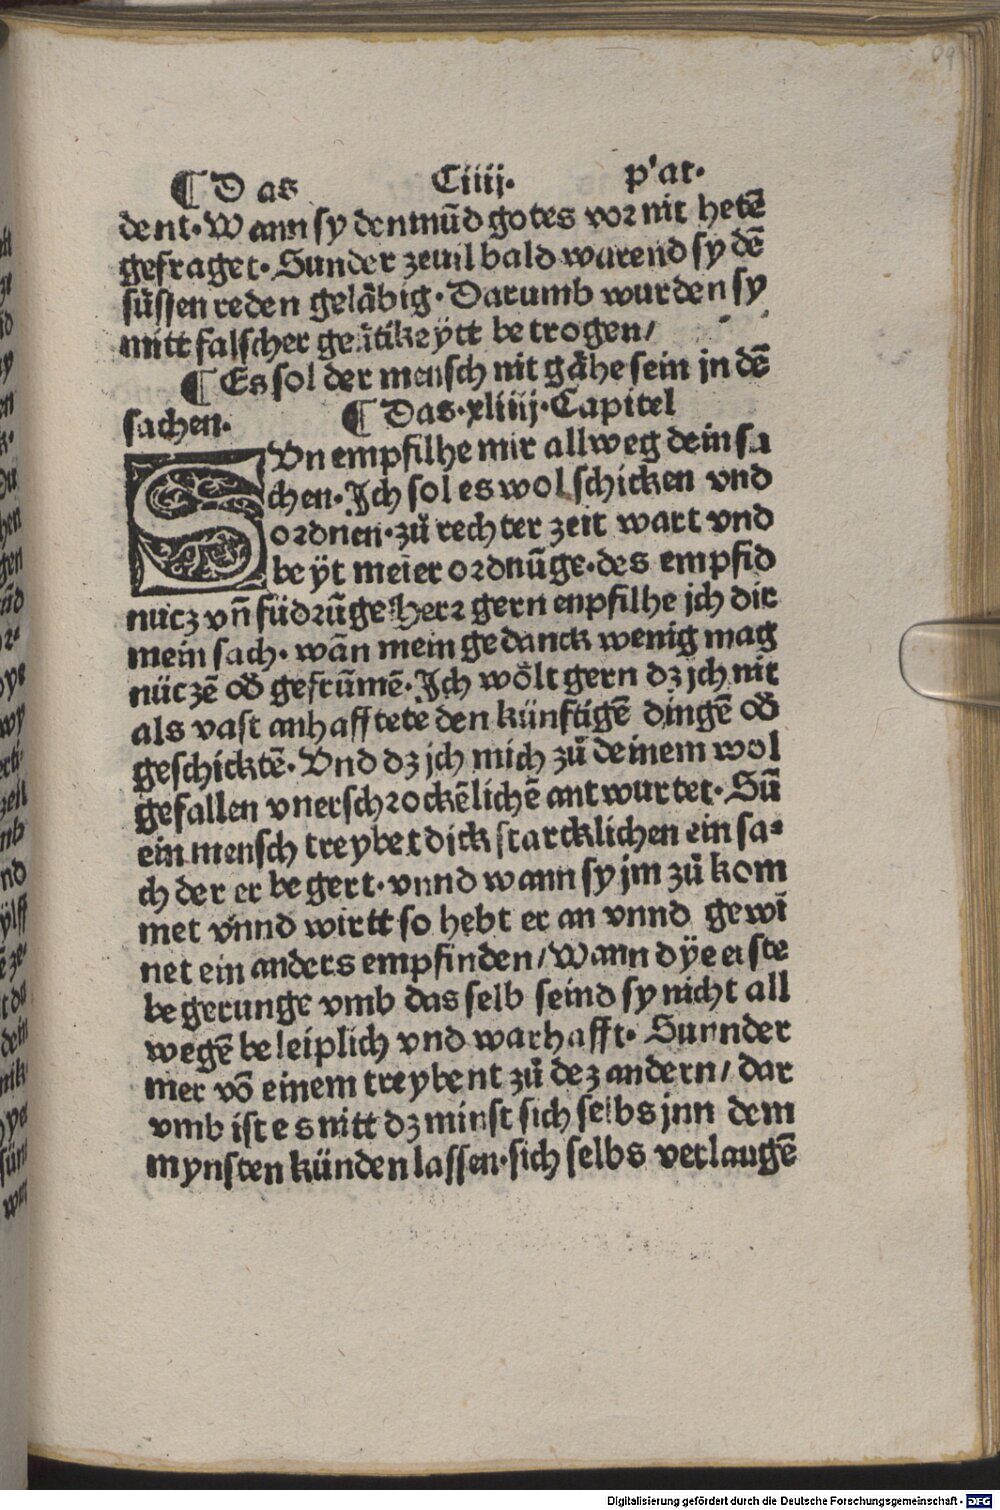 ¶ Das Ciiij. p'at.
dent. Wann sy den mūd gotes vor nit hetē
gefraget. Sunder zeuil bald warend sy dē
süssen reden gelābig. Darumb wurden sy
mitt falscher geātikeytt betrogen/
¶ Es sol der mensch nit gāhe sein jn dē
sachen. ¶ Das. xliiij. Capitel
SVn empfilhe mir allweg dein sa
chen. Jch sol es wol schicken vnd
ordnen. zů rechter zeit wart vnd
beÿt meier ordnūge. des empfid
nucz vn̄ füdrūge Herr gern enpfilhe jch dir
mein sach. wān mein gedanck wenig mag
nüczē od̄ gefrūmē. Jch wȯlt gern dz jch nit
als vast anhafftete den künftigē dingē od̄
geschicktē. Vnd dz jch mich zů deinem wol
gefallen vnerschrockēlichē antwurtet. Sū
ein mensch treybet dick starcklichen ein sa⸗
ch der er begert. vnnd wann sy jm zů kom
met vnnd wirtt so hebt er an vnnd gewī
net ein anders empfinden/ Wann dÿe erste
begerunge vmb das selb seind sy nicht all
wegē beleiplich vnd warhafft. Sunnder
mer vō einem treybent zů dez andern/ dar
vmb ist es nitt dz minst sich selbs jnn dem
mynsten künden lassen. sich selbs verlaugē
Digitalisierung gefördert durch die Deutsche Forschungsgemeinschaft - DFG